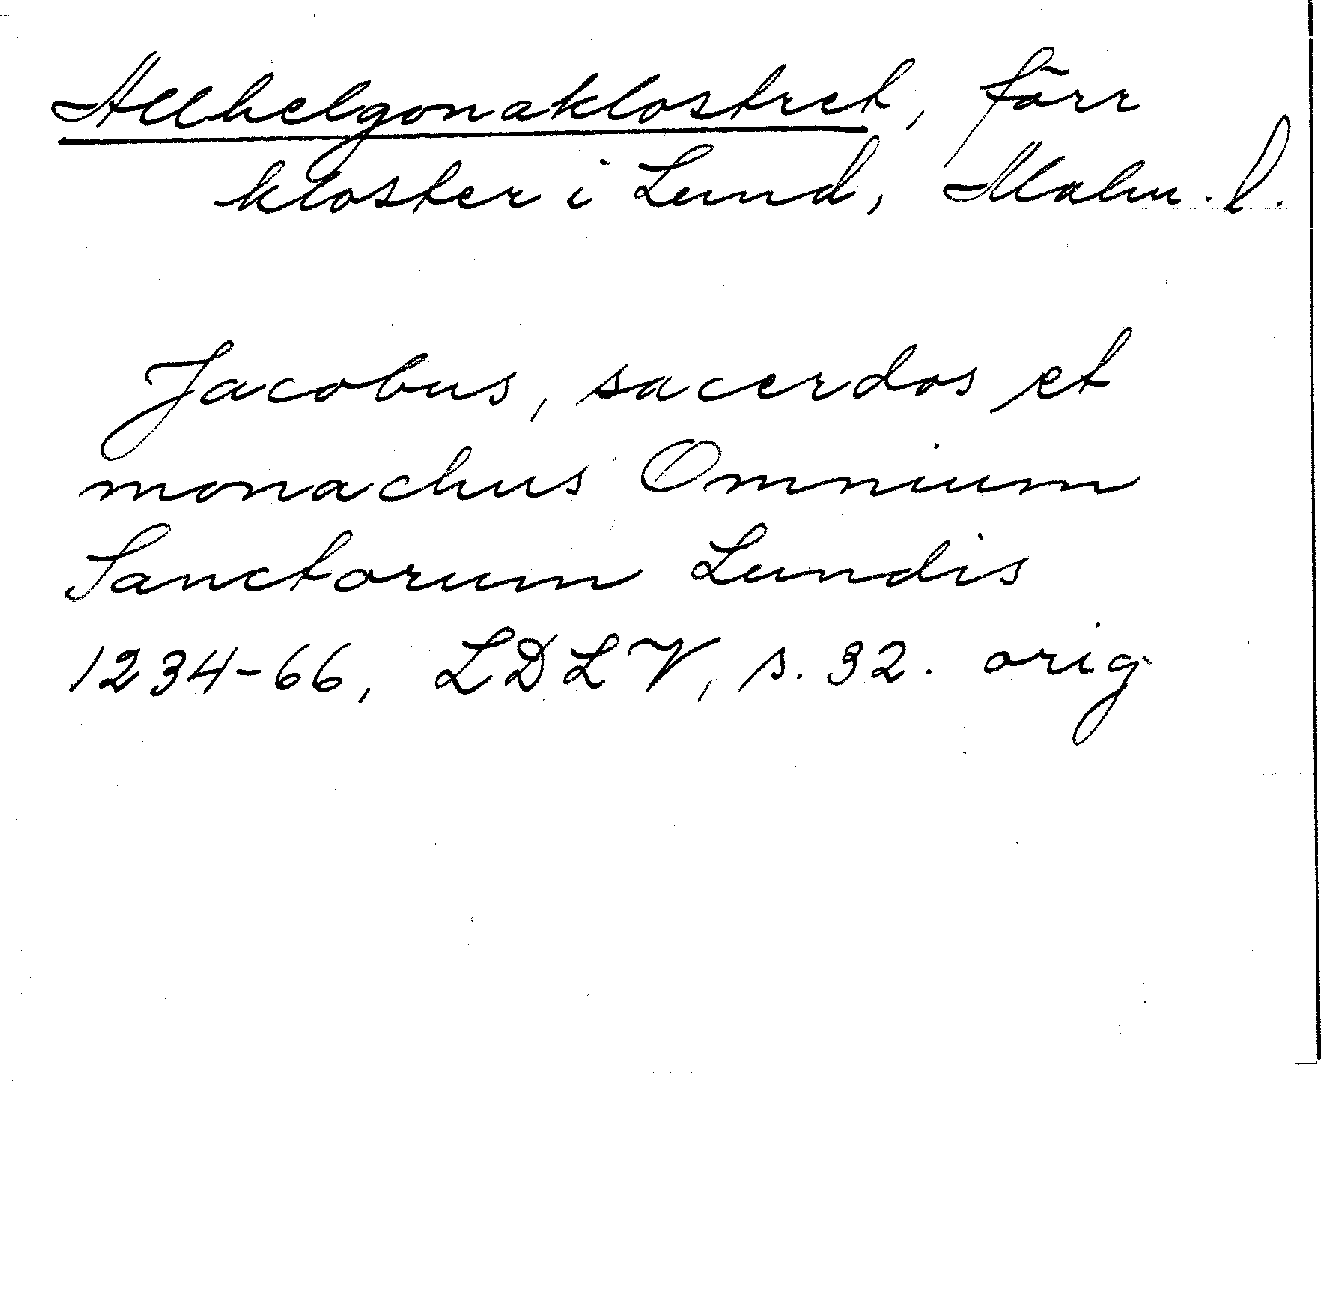 Allhelgonaklostret, förr
kloster i Lund, Malm. l.
Jacobus, sacerdos et
monachus Omnium
Sanctorum Lundis
1234-66, LDLV, s. 32. orig